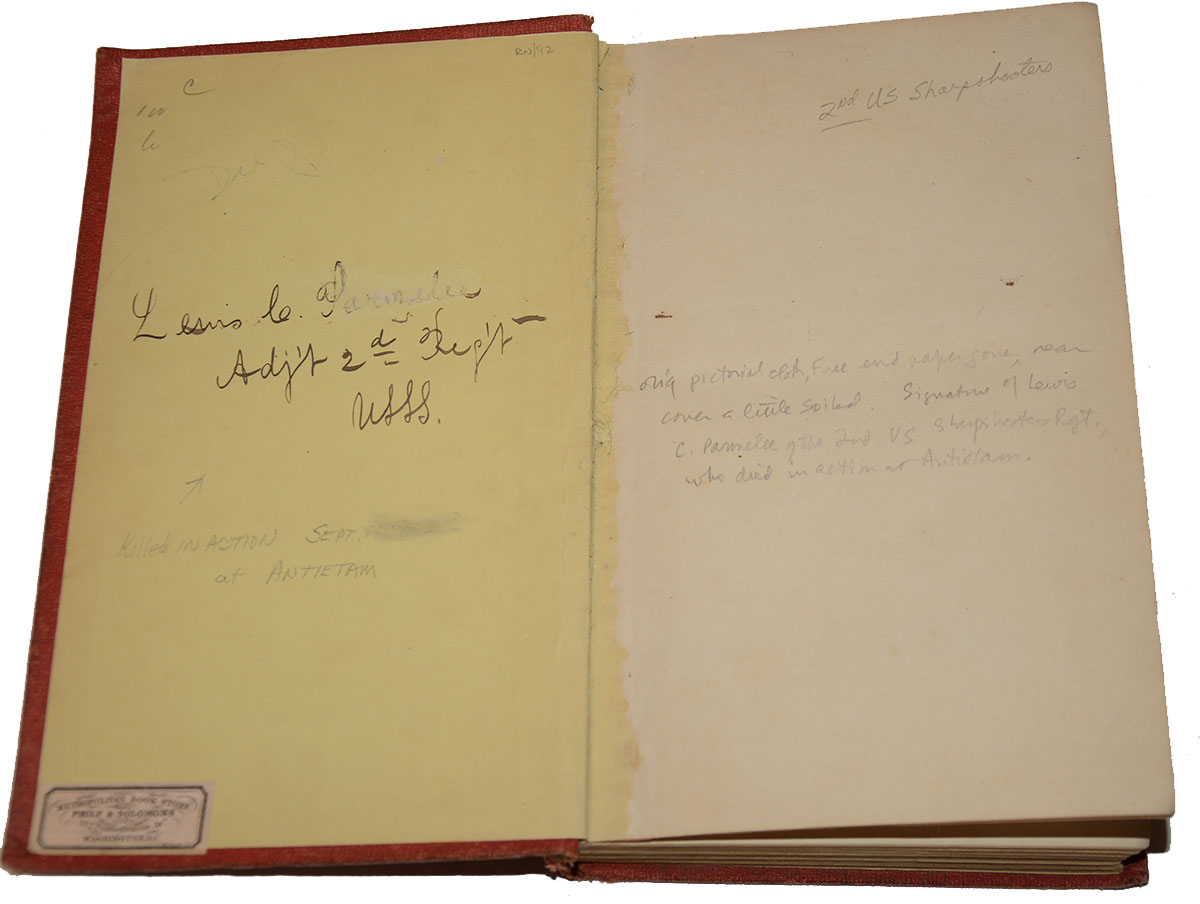 RN/92
C
Lewis C. Parmelee
Adj't 2d Reg't
USSS.
Killed IN ACTION SEPT.
at ANTIETAM
METROPOLITAN BOOK STORE
PHILP & SOLOMONS
WASHINGTON D.C
2nd US Sharpshooters
orig pictorial cloth, Free end paper gone, rear
cover a little soiled. Signature of Lewis
C. Parmelee of the 2nd US Sharpshooters Rgt.,
who died in action at Antietam.